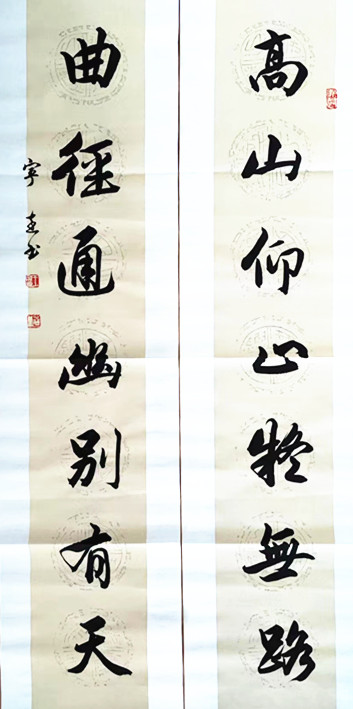 高山仰止疑無路
曲徑通幽別有天
寧 书